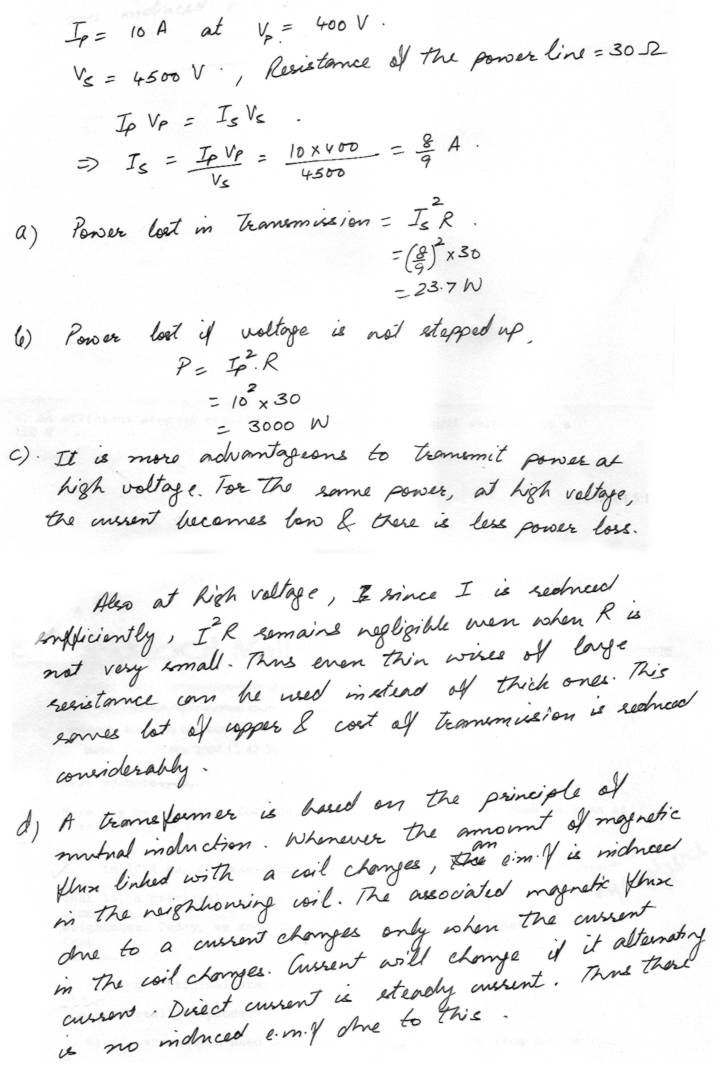 I_p = 10 A at V_p = 400 V.
V_s = 4500 V., Resistance of the power line = 30 Ω
I_p V_p = I_s V_s.
⇒ I_s = I_p V_p / V_s = 10 x 400 / 4500 = 8/9 A.
a) Power lost in Transmission = I_s² R.
= (8/9)² x 30
= 23.7 W
b) Power lost if voltage is not stepped up.
P = I_p². R
= 10² x 30
= 3000 W
c). It is more advantageous to transmit power at
high voltage. For the same power, at high voltage,
the current becomes low & there is less power loss.
Also at high voltage, since I is reduced
sufficiently, I²R remains negligible even when R is
not very small. Thus even thin wires of large
resistance can be used instead of thick ones. This
saves lot of copper & cost of transmission is reduced
considerably.
d) A transformer is based on the principle of
mutual induction. Whenever the amount of magnetic
flux linked with a coil changes, an e.m.f is induced
in the neighbouring coil. The associated magnetic flux
due to a current changes only when the current
in the coil changes. Current will change if it alternating
current. Direct current is steady current. Thus there
is no induced e.m.f due to this.